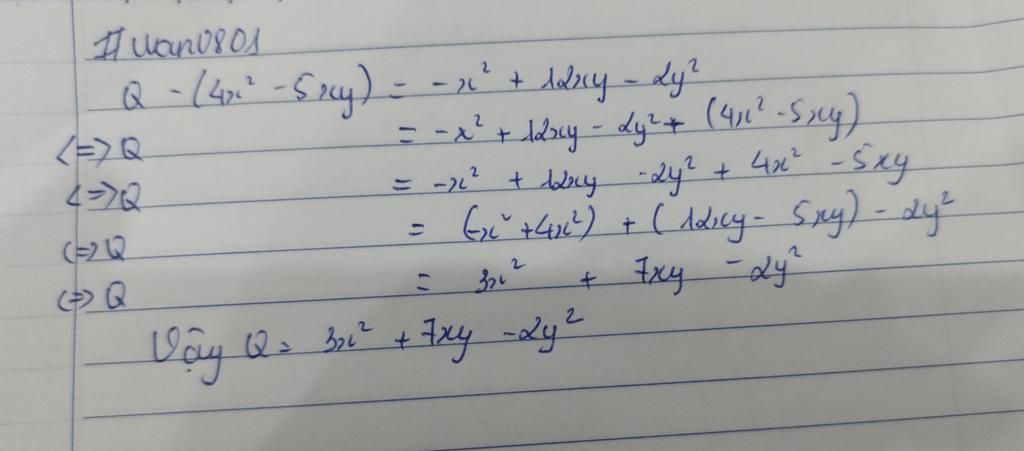 #uan0801
Q - (4x² - 5xy) = -x² + 12xy - 2y²
<=> Q = -x² + 12xy - 2y² + (4x² - 5xy)
<=> Q = -x² + 12xy - 2y² + 4x² - 5xy
<=> Q = (-x² + 4x²) + (12xy - 5xy) - 2y²
<=> Q = 3x² + 7xy - 2y²
Vậy Q = 3x² + 7xy - 2y²